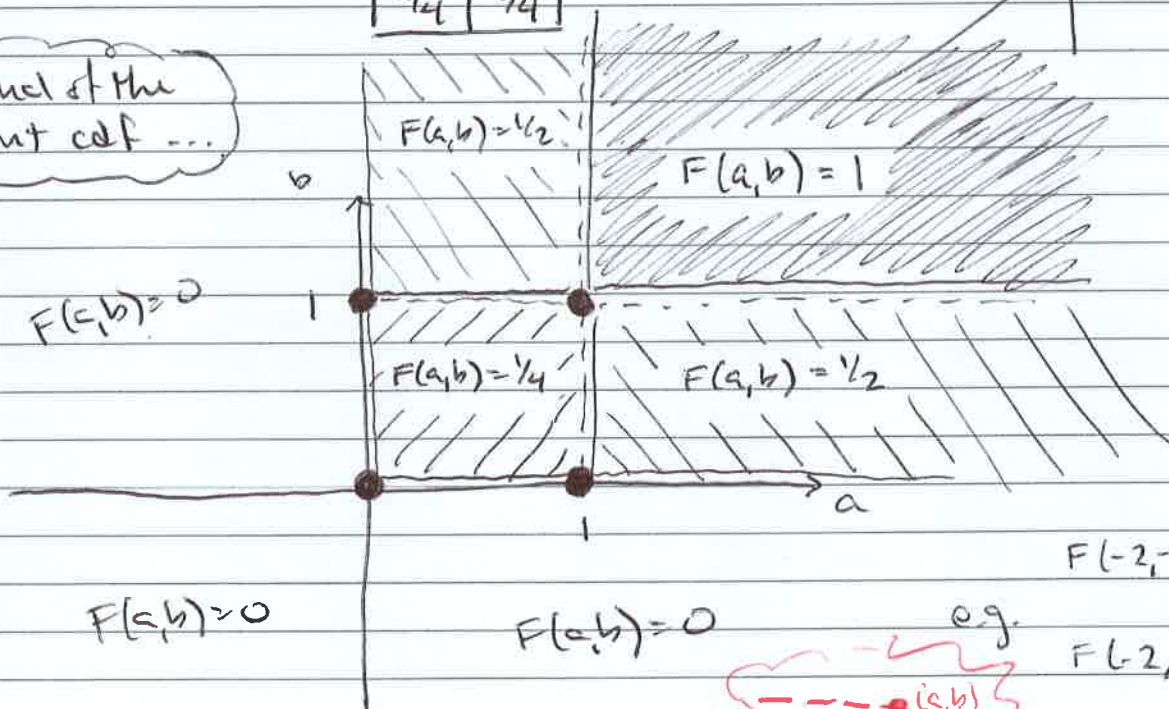 1/4 1/4
of the
cdf ...
F(a,b) = 1/2
F(a,b) = 1
b
F(a,b) = 0
1
F(a,b) = 1/4
F(a,b) = 1/2
a
1
F(-2,-
F(a,b) = 0
F(a,b) = 0
e.g.
F(-2,
(a,b)